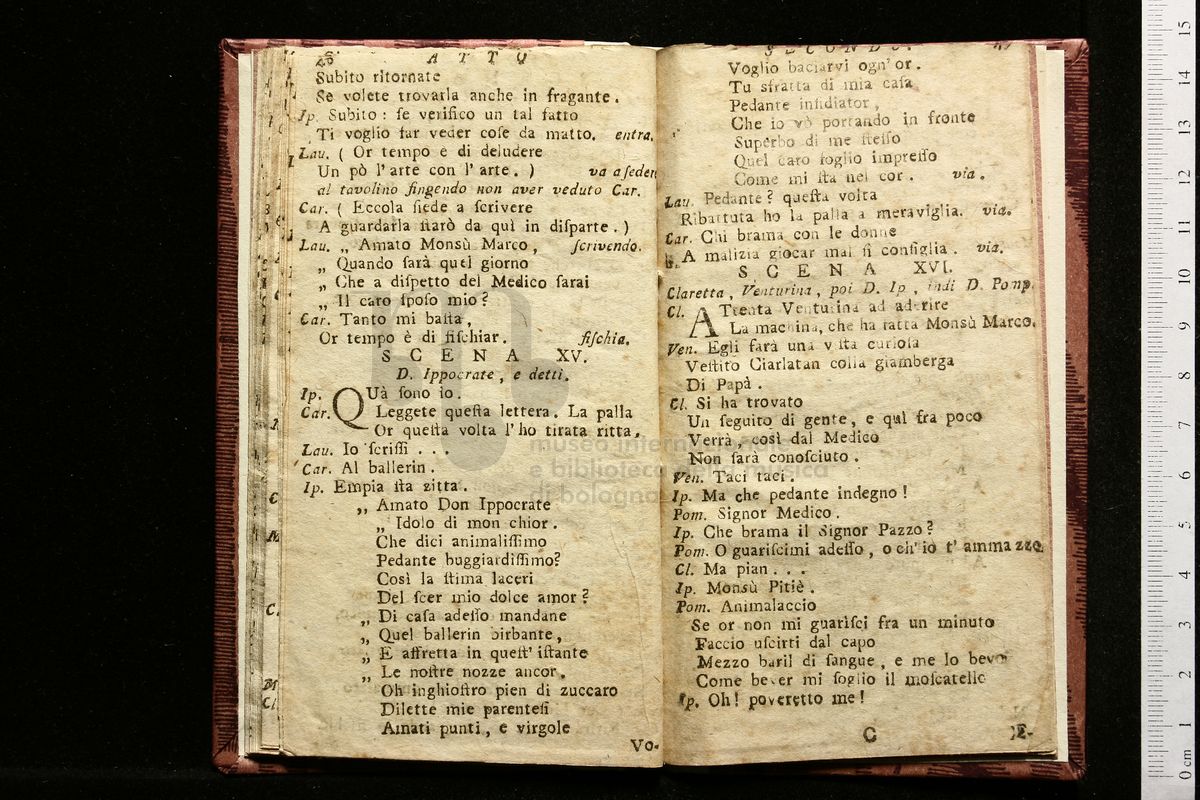 26 A T T O
Subito ritornate
Se volete trovarla anche in fragante.
Ip. Subito: se verifico un tal fatto
Ti voglio far veder coſe da matto. entra.
Lau. ( Or tempo e di deludere
Un pò l'arte con l'arte. ) va a ſeder
al tavolino fingendo non aver veduto Car.
Car. ( Eccola ſiede a ſcrivere
A guardarla ſtarò da quì in diſparte. )
Lau. „ Amato Monsù Marco, ſcrivendo.
„ Quando ſarà quel giorno
„ Che a diſpetto del Medico ſarai
„ Il caro ſpoſo mio?
Car. Tanto mi baſta,
Or tempo è di fiſchiar. fiſchia.
S C E N A XV.
D. Ippocrate, e detti.
Ip. QUà ſono io.
Car. Leggete queſta lettera. La palla
Or queſta volta l'ho tirata ritta.
Lau. Io ſcriſſi . . .
Car. Al ballerin.
Ip. Empia ſta zitta.
„ Amato Don Ippocrate
„ Idolo di mon chior.
Che dici animaliſſimo
Pedante buggiardiſſimo?
Così la ſtima laceri
Del ſcer mio dolce amor?
„ Di caſa adeſſo mandane
„ Quel ballerin birbante,
„ E affretta in queſt' iſtante
„ Le noſtre nozze ancor.
Oh inghioſtro pien di zuccaro
Dilette mie parenteſi
Amati punti, e virgole
Vo-
S E C O N D O.
Voglio baciarvi ogn'or.
Tu sfratta di mia caſa
Pedante inſidiator,
Che io vò portando in fronte
Superbo di me ſteſſo
Quel caro foglio impreſſo
Come mi ſta nel cor. via.
Lau. Pedante? queſta volta
Ribattuta ho la palla a meraviglia. via.
Car. Chi brama con le donne
A malizia giocar mal ſi conſiglia. via.
S C E N A XVI.
Claretta, Venturina, poi D. Ip, indi D. Pomp.
Cl. ATtenta Venturina ad aderire
La machina, che ha fatta Monsù Marco.
Ven. Egli farà una viſta curioſa
Veſtito Ciarlatan colla giamberga
Di Papà.
Cl. Si ha trovato
Un ſeguito di gente, e quì fra poco
Verrà, così dal Medico
Non ſarà conoſciuto.
Ven. Taci taci.
Ip. Ma che pedante indegno!
Pom. Signor Medico.
Ip. Che brama il Signor Pazzo?
Pom. O guariſcimi adeſſo, o ch'io t'ammazzo.
Cl. Ma pian . . .
Ip. Monsù Pitiè.
Pom. Animalaccio
Se or non mi guariſci fra un minuto
Faccio uſcirti dal capo
Mezzo baril di ſangue, e me lo bevo
Come bever mi ſoglio il moſcatello
Ip. Oh! poveretto me!
C
museo internazionale
e biblioteca della musica
di bologna